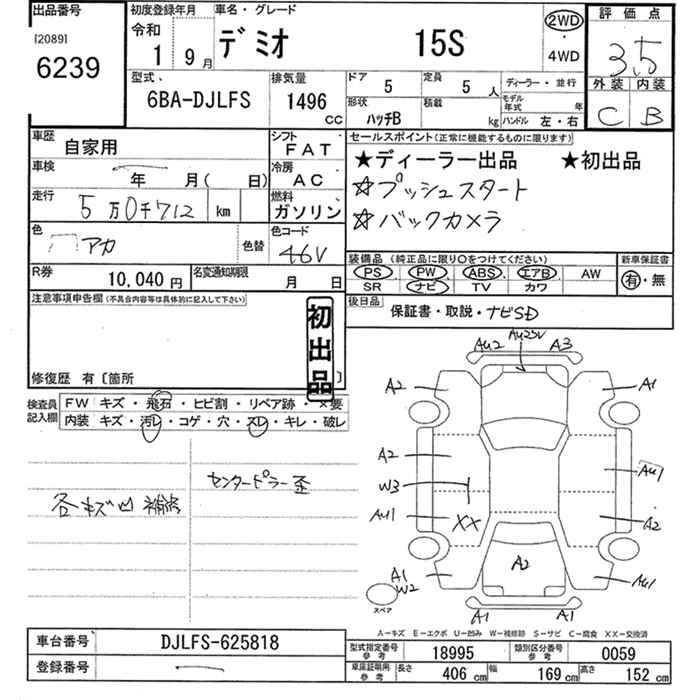 出品番号
[2089]
6239
初度登録年月
令和
1 9月
車名・グレード
デミオ 15S
2WD
・
4WD
評価点
3.5
外装 内装
C B
型式
6BA-DJLFS
排気量
1496
cc
ドア 5
定員 5 人
ディーラー・並行
形状 ハッチB
積載 kg
モデル年式 年
ハンドル 左・右
車歴 自家用
シフト FAT
車検 年 月( 日)
冷房 AC
走行 5万0千712 km
燃料 ガソリン
色 アカ
色替
色コード 46V
R券 10,040円
名変通知期限 月 日
セールスポイント(正常に機能するものに限ります)
★ディーラー出品 ★初出品
☆プッシュスタート
☆バックカメラ
装備品 (純正品に限り○をつけてください)
PS PW ABS エアB AW
SR ナビ TV カワ
新車保証書
有・無
後日品
保証書・取説・ナビSD
注意事項申告欄(不具合内容等は具体的に記入して下さい)
初出品
修復歴 有〔箇所 〕
検査員記入欄
FW キズ・飛石・ヒビ割・リペア跡・×要
内装 キズ・汚レ・コゲ・穴・スレ・キレ・破レ
各キズ凹 補修
センターピラー歪
AU2 AU2SV A3
A2 A1
A2
W3
AU1
AU1
XX
A2
A2
A1
W2
AU1
スペア
A1 A1
A-キズ E-エクボ U-凹み W-補修跡 S-サビ C-腐食 XX-交換済
車台番号 DJLFS-625818
登録番号
型式指定番号 参考 18995
類別区分番号 参考 0059
車庫証明用 参考 長さ 406 cm 幅 169 cm 高さ 152 cm